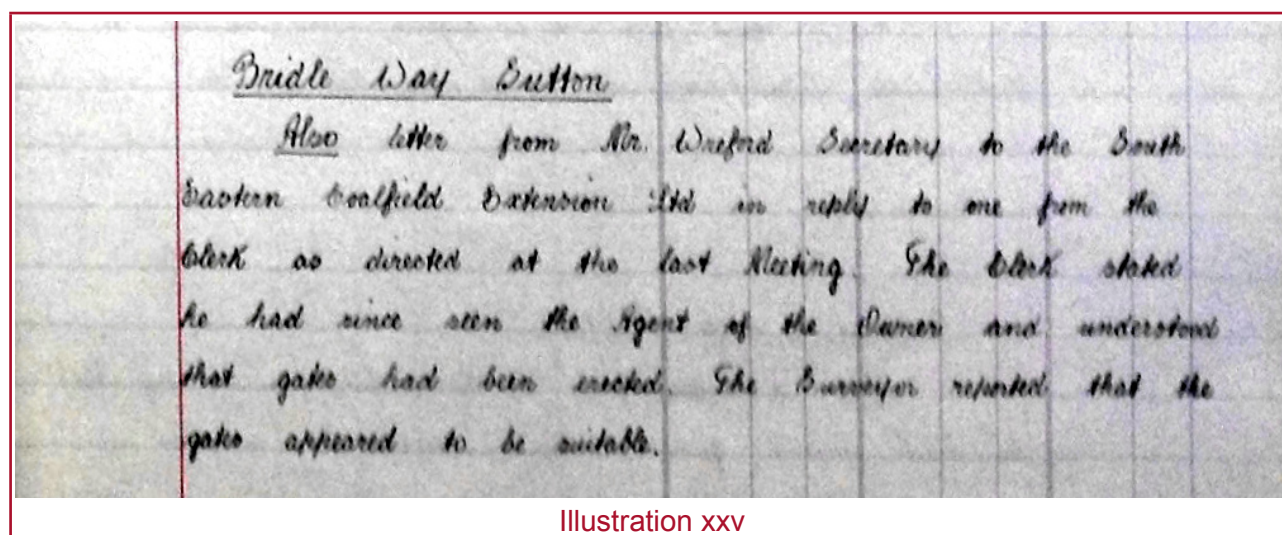 Bridle Way Sutton
Also letter from Mr. Wreford Secretary to the South
Eastern Coalfield Extension Ltd in reply to one from the
Clerk as directed at the last Meeting. The Clerk stated
he had since seen the Agent of the Owners and understood
that gates had been erected. The Surveyor reported that the
gates appeared to be suitable.
Illustration xxv